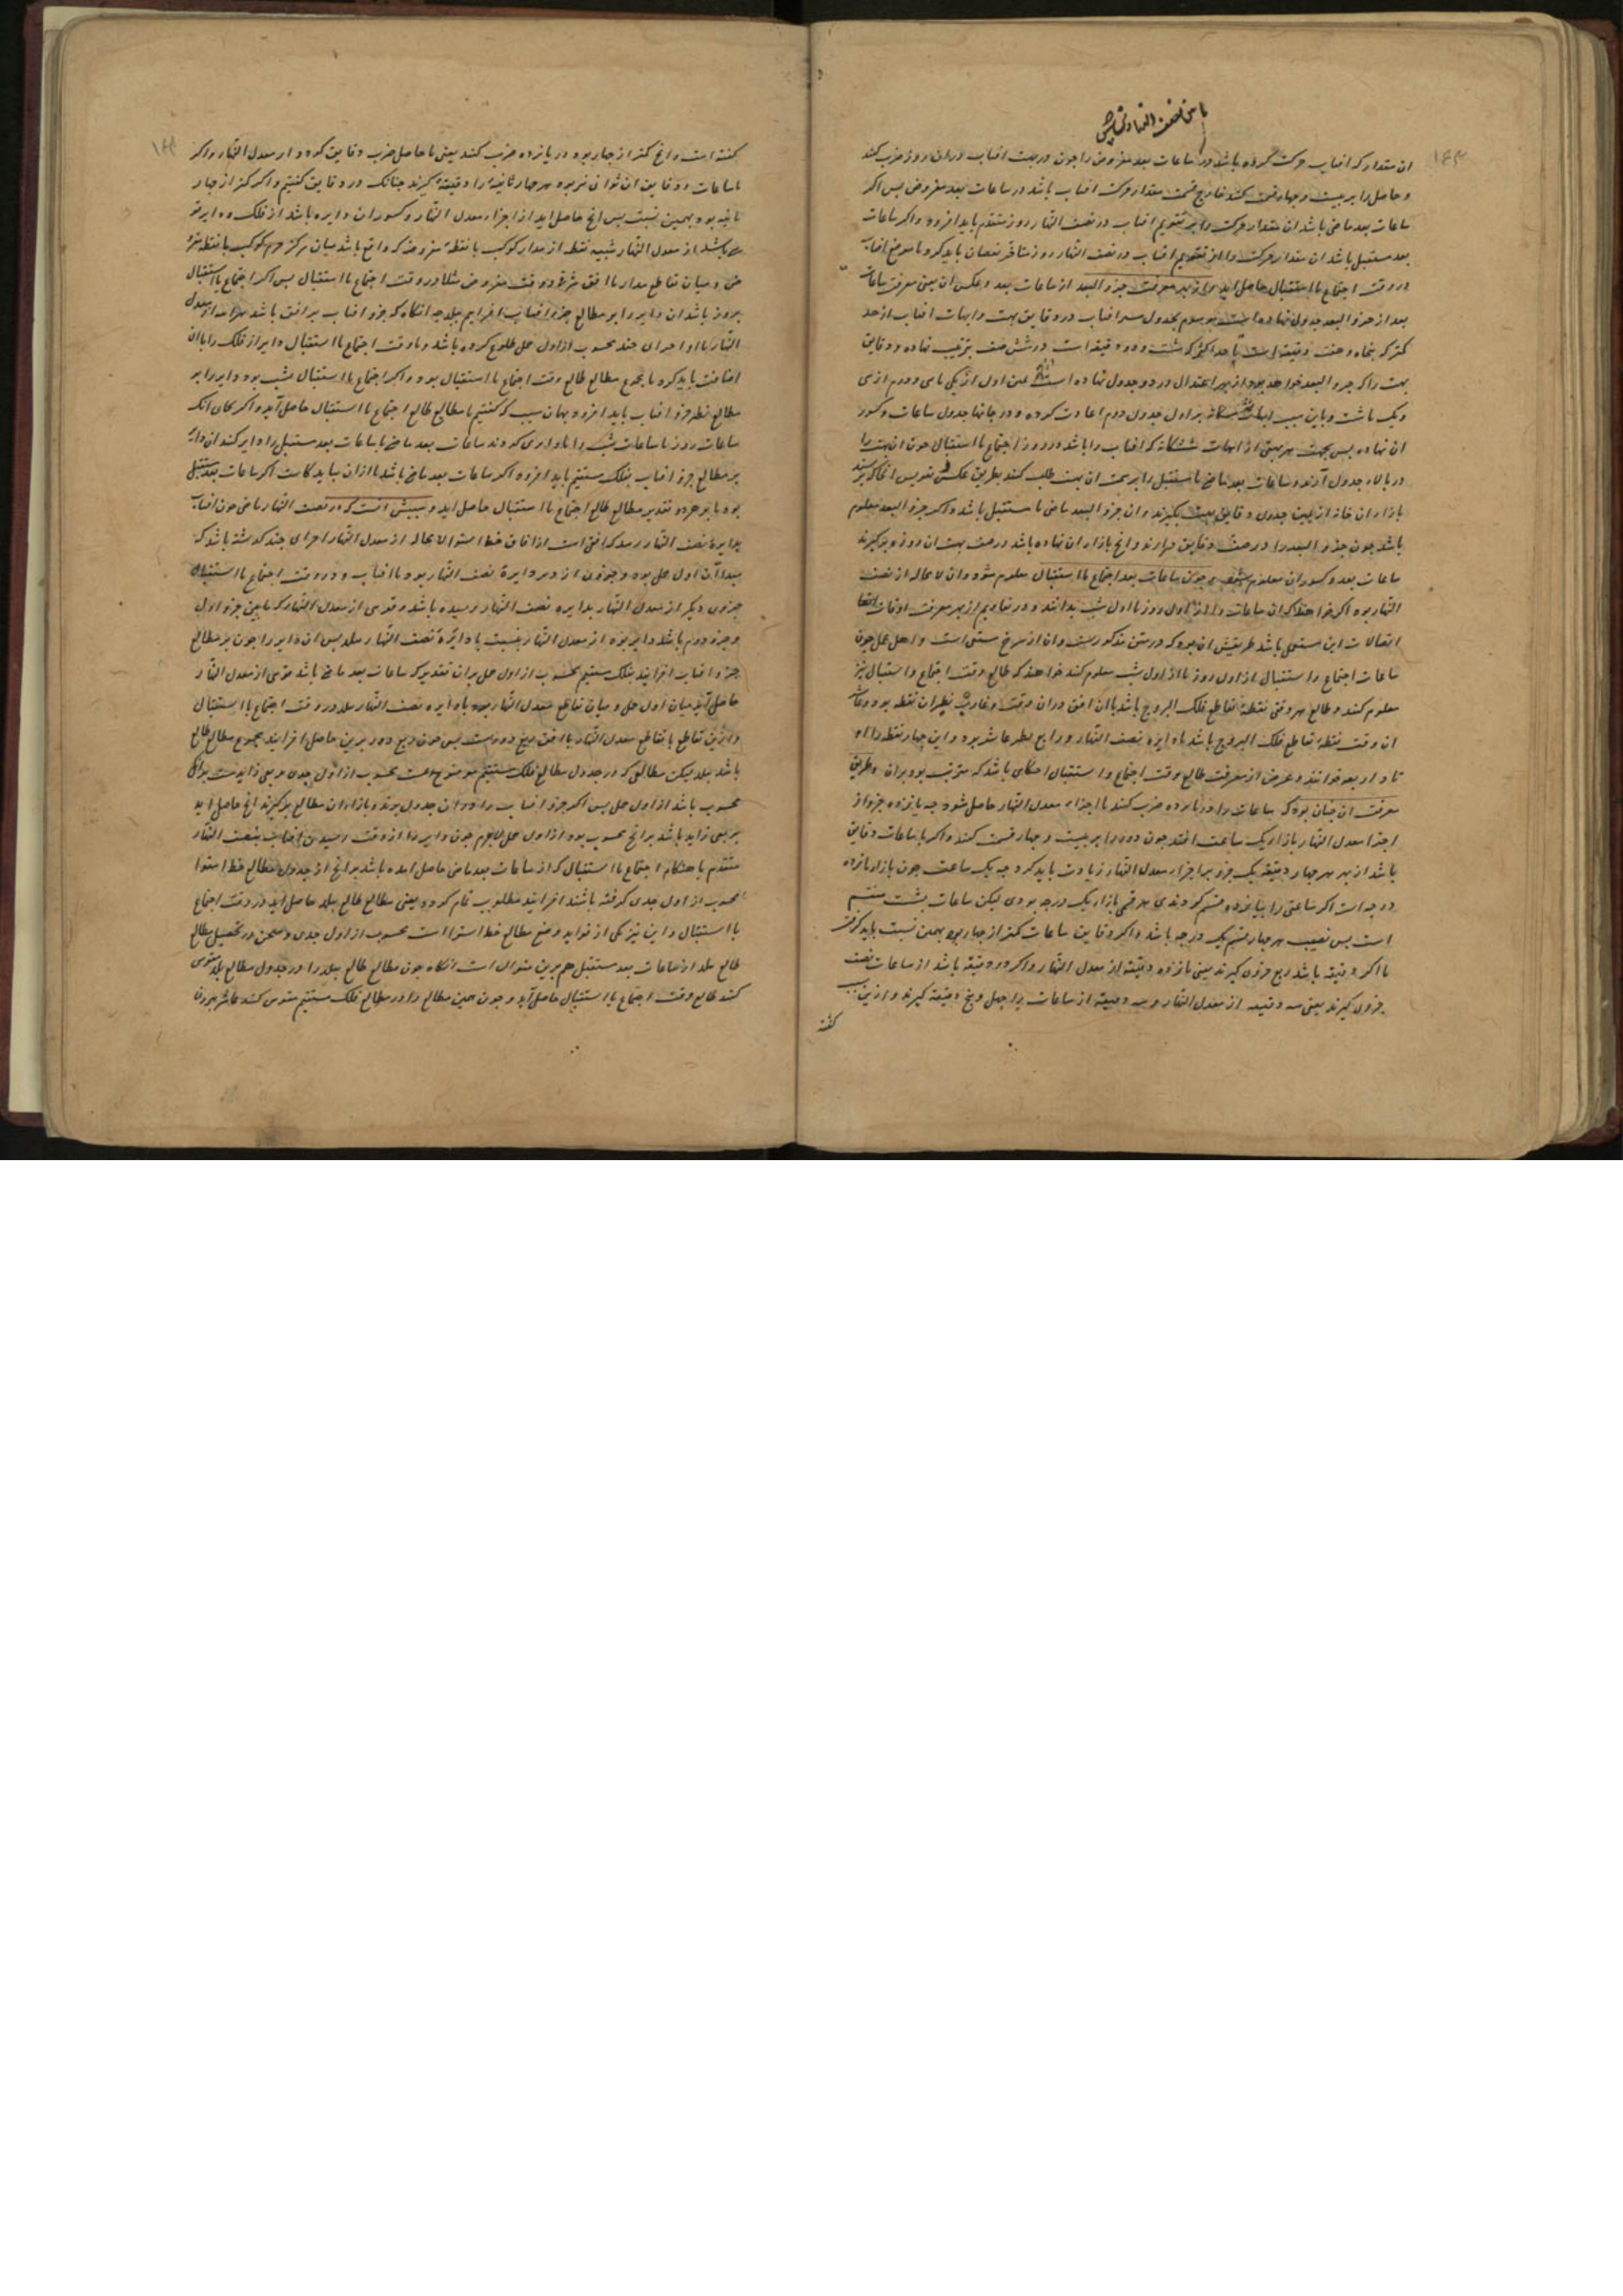 ان مقدار که افتاب حرکت کرده باشد در ساعات بعد مفروض را چون در بهت افتاب دران روز ضرب کنند
و حاصل را بر بیست و چهار قسمت کنند خارج قسمت مقدار حرکت افتاب باشد در ساعات بعد مفروض پس اکر
ساعات بعد ماضی باشد ان مقدار حرکت را بر تقویم افتاب در نصف النهار روز متقدم باید افزود و اکر ساعات
بعد مستقبل باشد ان مقدار حرکت را از تقویم افتاب در نصف النهار روز متاخر نقصان باید کرد تا موضع افتاب
در وقت اجتماع یا استقبال حاصل اید و از بهر معرفت جزو البعد از ساعات بعد و عکس ان یعنی معرفت ساعات
بعد از جزو البعد جدولی نهاده است موسوم بجدول سیر افتاب در دقایق بهت و ابهات افتاب از حد
کمتر که پنجاه و هفت دقیقه است تا حد اکثر که شصت و دو دقیقه است در شش صف بترتیب نهاده و دقایق
ان نهاده پس بجهت هر بهتی از ابهات ششکانه که افتاب را باشد در روز اجتماع یا استقبال چون ان بهت را
در بالاء جدول آرند و ساعات بعد ماضی یا مستقبل را بر
باشد چون جزو البعد را در صف دقایق
ساعات بعد و کسور ان معلوم شود و چون ساعات بعد اجتماع یا استقبال معلوم شود وان لا محاله از نصف
النهار بود اکر خواهند که ان ساعات را از اول روز یا اول شب بدانند و در تقاویم از بهر معرفت اوقات
اتصالات این مستعمل باشد طریقش ان بود که در متن مذکور است وان از شرح مستغنی است و اهل عمل چون
ساعات اجتماع و استقبال از اول روز یا از اول شب معلوم کنند خواهند که طالع وقت اجتماع و استقبال نیز
معلوم کنند و طالع هر وقتی نقطهٔ تقاطع فلک البروج باشد با ان افق دران وقت و غارب نظیر ان نقطه بود و عاشر
ان وقت نقطهٔ تقاطع فلک البروج باشد با دایره نصف النهار و رابع نظیر عاشر بود و این چهار نقطه را او
تاد اربعه خوانند و غرض از معرفت طالع وقت اجتماع و استقبال احکامی باشد که مترتب بود بران و طریق
معرفت ان چنان بود که ساعات را در پانزده ضرب کنند تا اجزاء معدل النهار حاصل شود چه پانزده جزو از
اجزا معدل النهار بازاء یک ساعت افتد چون دور را بر بیست و چهار قسمت کنند و اکر با ساعات دقایق
باشد از بهر هر چهار دقیقه یک جزو بر اجزاء معدل النهار زیادت باید کرد چه یک ساعت چون بازاء پانزده
درجه است اکر ساعتی را بپانزده قسم کردندی هر قسمی بازاء یک درجه بودی لیکن ساعات بشصت منقسم
است پس نصیب هر چهار قسم یک درجه باشد و اکر دقایق ساعات کمتر از چهار بود بهمین نسبت باید کرفت
تا اکر دقیقه باشد ربع جزوی کیرند یعنی پانزده دقیقه از معدل النهار و اکر دو دقیقه باشد از ساعات نصف
جزوی کیرند یعنی سی دقیقه از معدل النهار و سه دقیقه از ساعات را چهل و پنج دقیقه کیرند و ازین سبب
کفته
کفته است و انچ کمتر از چهار بود در پانزده ضرب کنند یعنی تا حاصل ضرب دقایق کردد از معدل النهار و اکر
با ساعات و دقایق ان ثوانی نیز بود هر چهار ثانیه را دقیقهٔ کیرند چنانک در دقایق کفتیم و اکر کمتر از چهار
ثانیه بود بهمین نسبت پس انچ حاصل اید از اجزاء معدل النهار و کسور ان دایر باشد از فلک و دایر قو
سی باشد از معدل النهار شبیه
ضرب و میان تقاطع مدار با افق شرقی در وقت مفروض مثلا در وقت اجتماع یا استقبال پس اکر اجتماع یا استقبال
بروز باشد ان دایر را بر مطالع جزو افتاب افزاییم ببلد چه انکاه که جزو افتاب بر افق باشد
النهار با او اجزای چند محسوب از اول حمل طلوع کرده باشد و تا وقت اجتماع یا استقبال دایر از فلک را با ان
اضافت باید کرد تا مجموع مطالع طالع وقت اجتماع یا استقبال بود و اکر اجتماع یا استقبال بشب بود دایر را بر
مطالع نظیر جزو افتاب باید افزود بهمان سبب که کفتیم تا مطالع طالع اجتماع یا استقبال حاصل آید و اکر بجای انک
ساعات روز یا ساعات شب را
بر مطالع جزو افتاب بفلک مستقیم باید افزود اکر ساعات بعد ماضی باشد یا ازان بباید کاست اکر ساعات بعد مستقبل
بود تا بر هر دو تقدیر مطالع طالع اجتماع یا استقبال حاصل اید و سببش انست که در نصف النهار ماضی چون افتاب
بدایرهٔ نصف النهار رسد که افقی است از افاق خط استوا لا محاله از معدل النهار اجزای چند کذشته باشد که
مبدا آن اول حمل بود و جزوی ازو بر دایرهٔ نصف النهار بود با افتاب و در وقت اجتماع یا استقبال
جزوی دیکر از معدل النهار بدایره نصف النهار رسیده باشد و قوسی از معدل النهار که مابین جزو اول
و جزو دوم باشد دایر بود از معدل النهار بنسبت با دایرهٔ نصف النهار بلد پس ان دایر را چون بر مطالع
جزو افتاب افزایند بفلک مستقیم محسوب از اول حمل بران تقدیر که ساعات بعد ماضی باشد قوسی از معدل النهار
حاصل آید میان اول حمل و میان تقاطع معدل النهار بود با دایره نصف النهار بلد در وقت اجتماع یا استقبال
وازین تقاطع تا تقاطع معدل النهار با افق ربع دورست پس چون ربع دور برین حاصل افزایند مجموع مطالع طالع
باشد ببلد لیکن مطالعی که در جدول مطالع فلک مستقیم موضوع است محسوب از اول جدی
محسوب باشد از اول حمل پس اکر جزو افتاب را دران جدول برند و بازاء ان مطالع برکیرند انچ حاصل اید
بربعی زاید باشد بر انچ محسوب بود از اول حمل لاجرم چون دایر را از وقت رسیدن افتاب بنصف النهار
متقدم تا هنکام اجتماع یا استقبال که از ساعات بعد ماضی حاصل امده باشد بر انچ از جدول مطالع خط استوا
محسوب از اول جدی کرفته باشند افزایند مطلوب تمام کردد یعنی مطالع طالع ببلد حاصل اید در وقت اجتماع
یا استقبال و این نیز یکی از فواید وضع مطالع خط استوا است محسوب از اول جدی
طالع بلد از ساعات بعد مستقبل هم برین منوال است انکاه چون مطالع طالع ببلد را در جدول مطالع بلد مقوس
کنند طالع وقت اجتماع یا استقبال حاصل آید و چون همین مطالع را در مطالع فلک مستقیم مقوس کنند عاشر بیرون